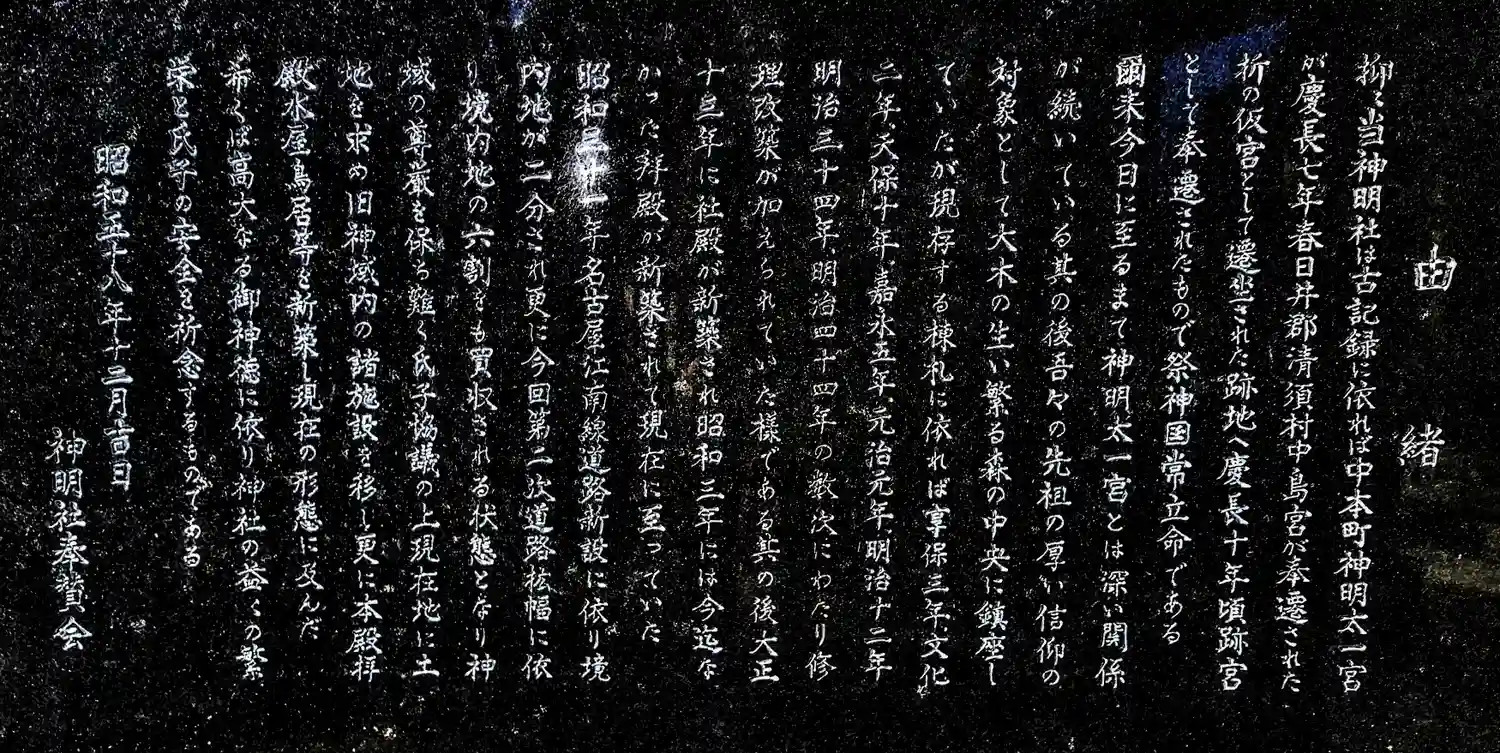 由緒
抑々当神明社は古記録に依れば中本町神明太一宮
が慶長七年春日井郡清須村中島宮が奉遷された
折の仮宮として遷坐された跡地へ慶長十年頃跡宮
として奉遷されたもので祭神国常立命である
爾来今日に至るまで神明太一宮とは深い関係
が続いている其の後吾々の先祖の厚い信仰の
対象として大木の生い繁る森の中央に鎮座し
ていたが現存する棟札に依れば享保三年文化
二年、天保十年、嘉永五年、元治元年、明治十二年
明治三十四年、明治四十四年の数次にわたり修
理改築が加えられていた様である其の後大正
十三年に社殿が新築され昭和三年には今迄な
かった拝殿が新築されて現在に至っていた
昭和三十一年名古屋江南線道路新設に依り境
内地が二分され更に今回第二次道路拡幅に依
り境内地の六割をも買収される状態となり神
域の尊厳を保ち難く氏子協議の上現在地に土
地を求め旧神域内の諸施設を移し更に本殿拝
殿水屋鳥居等を新築し現在の形態に及んだ
希くば高大なる御神徳に依り神社の益々の繁
栄と氏子の安全を祈念するものである
昭和五十八年十二月吉日
神明社奉賛会